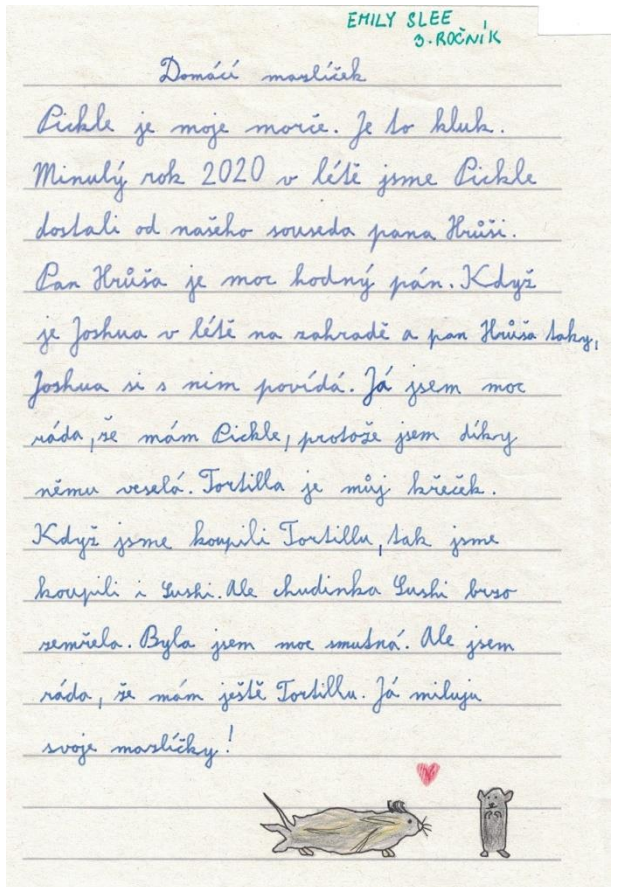 EMILY SLEE
3. ROČNÍK
Domácí mazlíček
Pickle je moje morče. Je to kluk.
Minulý rok 2020 v létě jsme Pickle
dostali od našeho souseda pana Hrůši.
Pan Hrůša je moc hodný pán. Když
je Joshua v létě na zahradě a pan Hrůša taky,
Joshua si s nim povídá. Já jsem moc
ráda, že mám Pickle, protože jsem díky
němu veselá. Tortilla je můj křeček.
Když jsme koupili Tortillu, tak jsme
koupili i Sushi. Ale chudinka Sushi brzo
zemřela. Byla jsem moc smutná. Ale jsem
ráda, že mám ještě Tortillu. Já miluju
svoje mazlíčky!